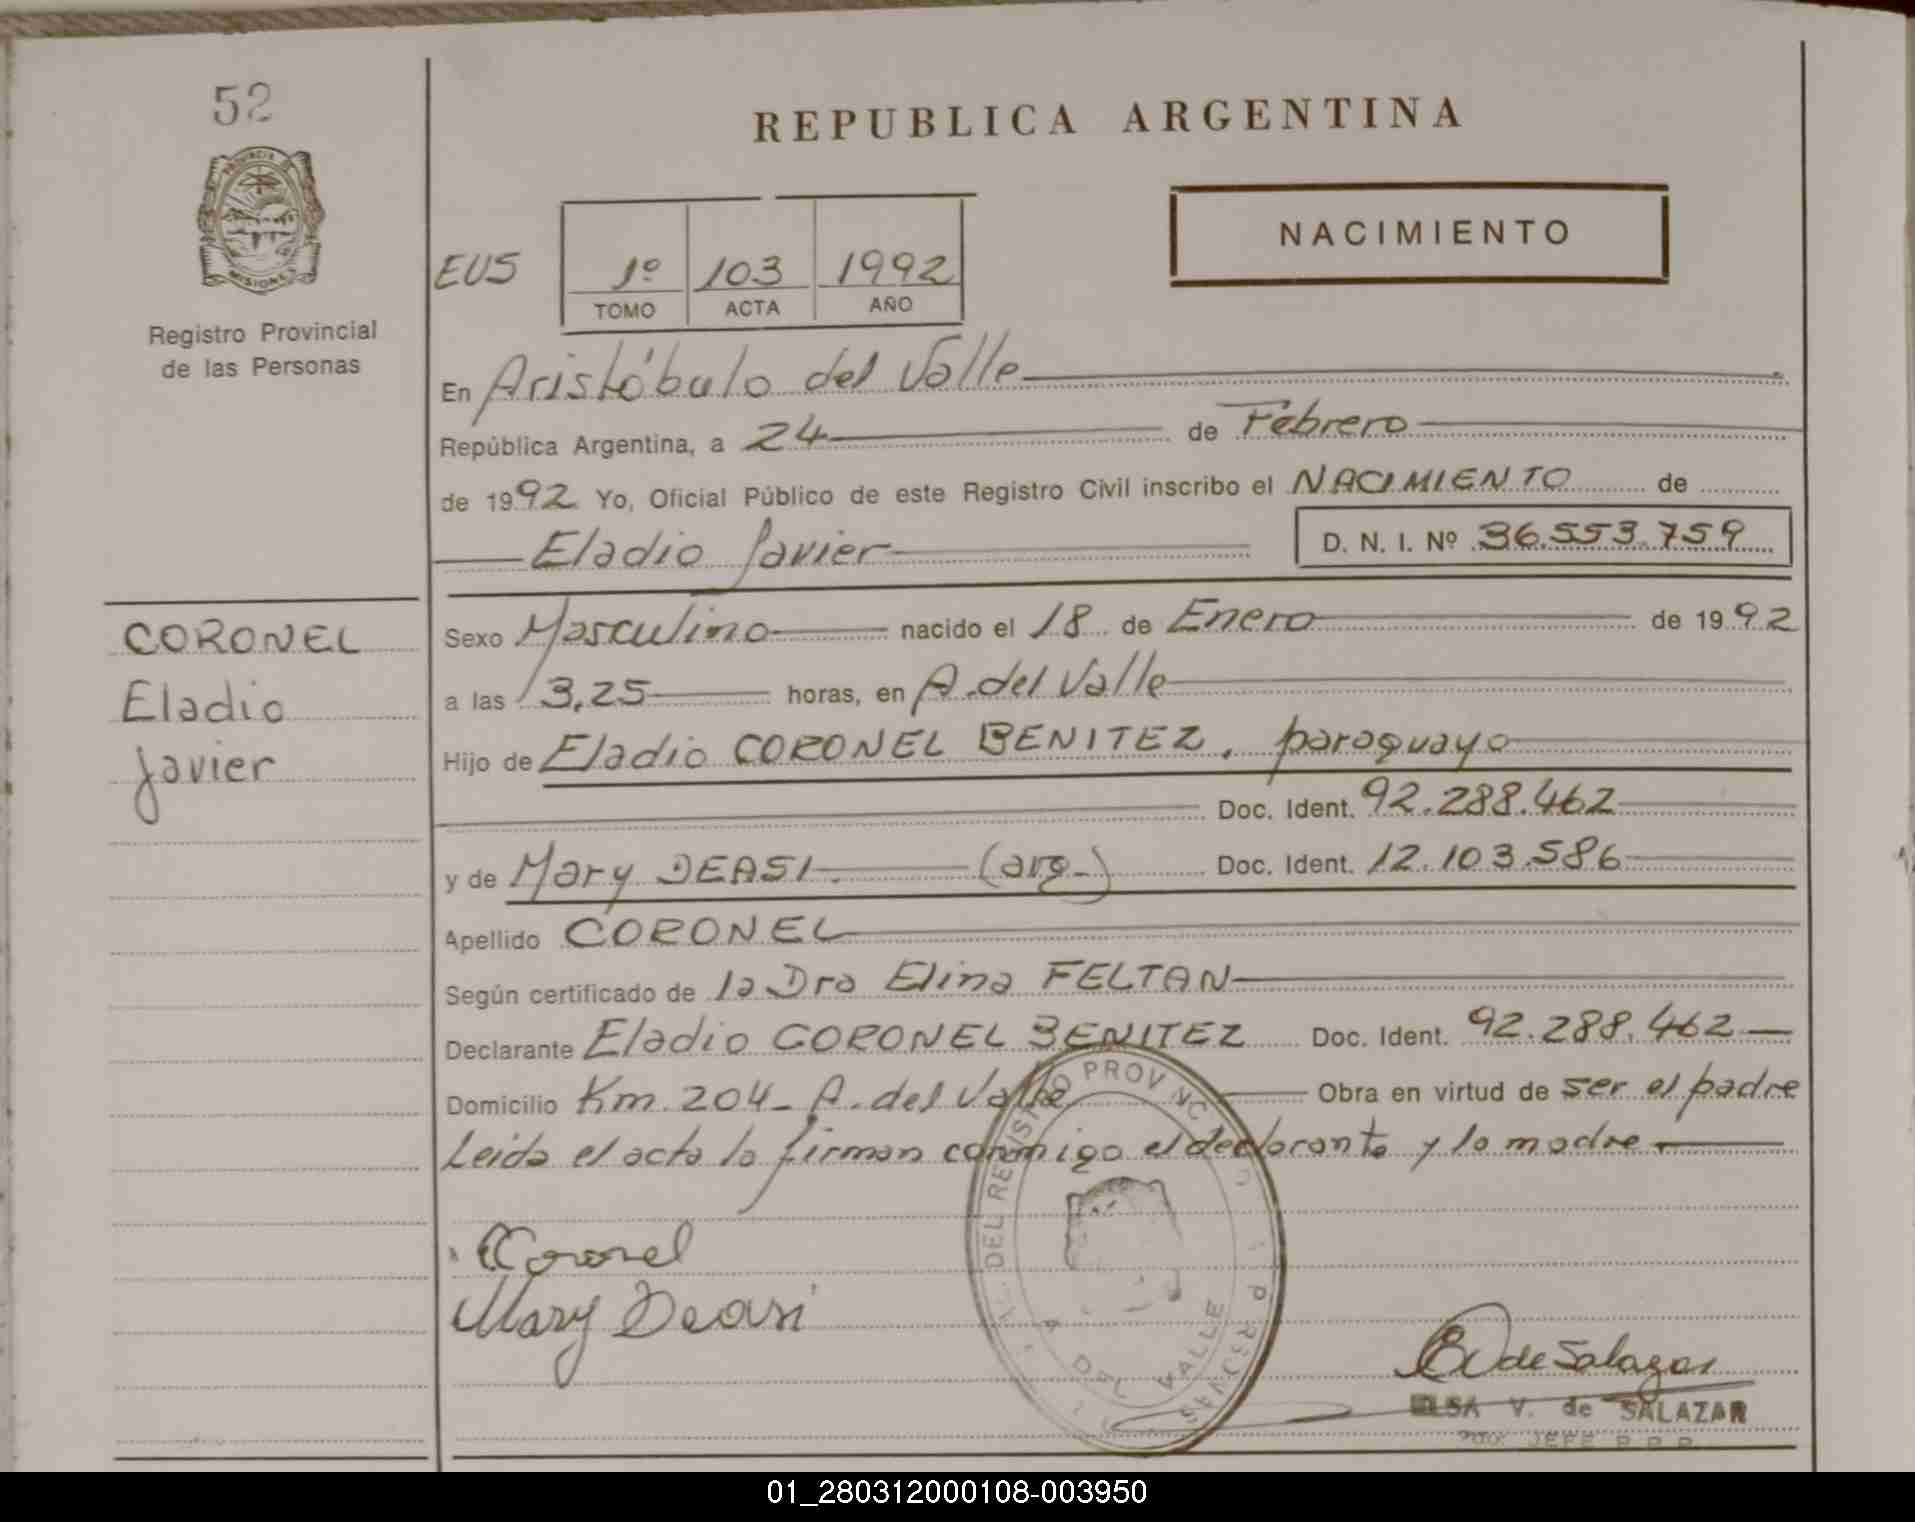 52
PROVINCIA DE
MISIONES
Registro Provincial
de las Personas
CORONEL
Eladio
Javier
REPUBLICA ARGENTINA
NACIMIENTO
EUS
1º 103 1992
TOMO ACTA AÑO
En Aristóbulo del Valle
República Argentina, a 24 de Febrero
de 1992 Yo, Oficial Público de este Registro Civil inscribo el NACIMIENTO de
Eladio Javier D. N. I. Nº 36.553.759
Sexo Masculino nacido el 18 de Enero de 1992
a las 13,25 horas, en A. del Valle
Hijo de Eladio CORONEL BENITEZ. paraguayo
Doc. Ident. 92.288.462
y de Mary DEASI. (arg.) Doc. Ident. 12.103.586
Apellido CORONEL
Según certificado de la Dra Elina FELTAN
Declarante Eladio CORONEL BENITEZ Doc. Ident. 92.288.462
Domicilio Km 204 - A. del Valle Obra en virtud de ser el padre
Leída el acta la firman conmigo el declarante y la madre
Coronel
Mary Deasi
DEL REGISTRO PROVINC
A. DEL VALLE
EV de Salazar
ELSA V. de SALAZAR
JEFE R.P.P.
01_280312000108-003950